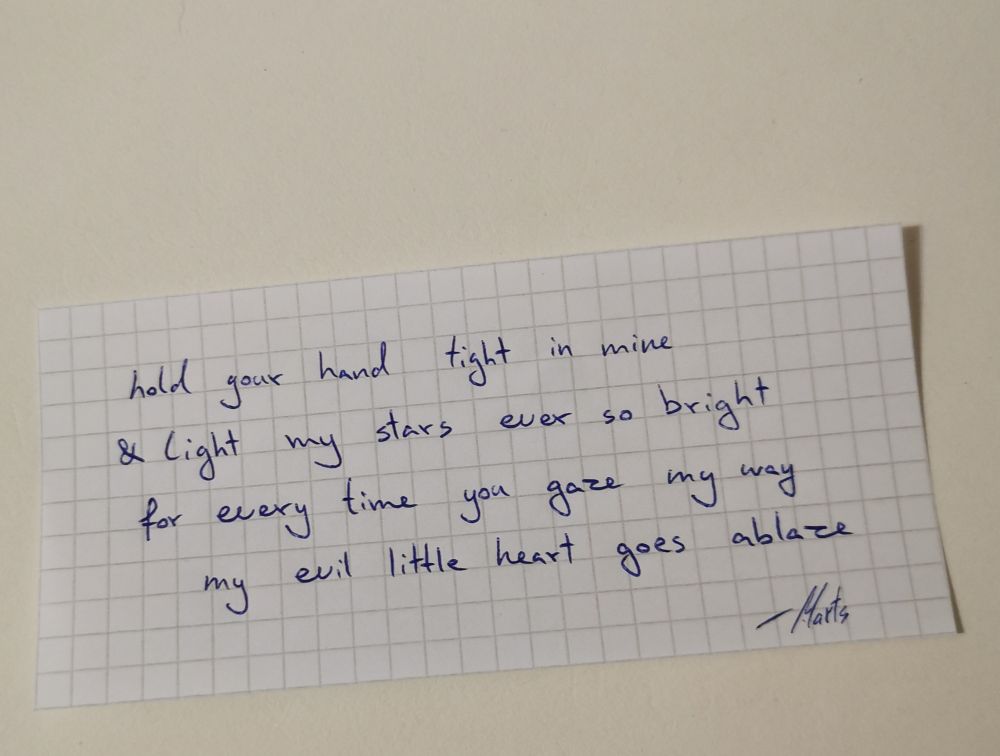 hold your hand tight in mine
& light my stars ever so bright
for every time you gaze my way
my evil little heart goes ablaze
—Marts